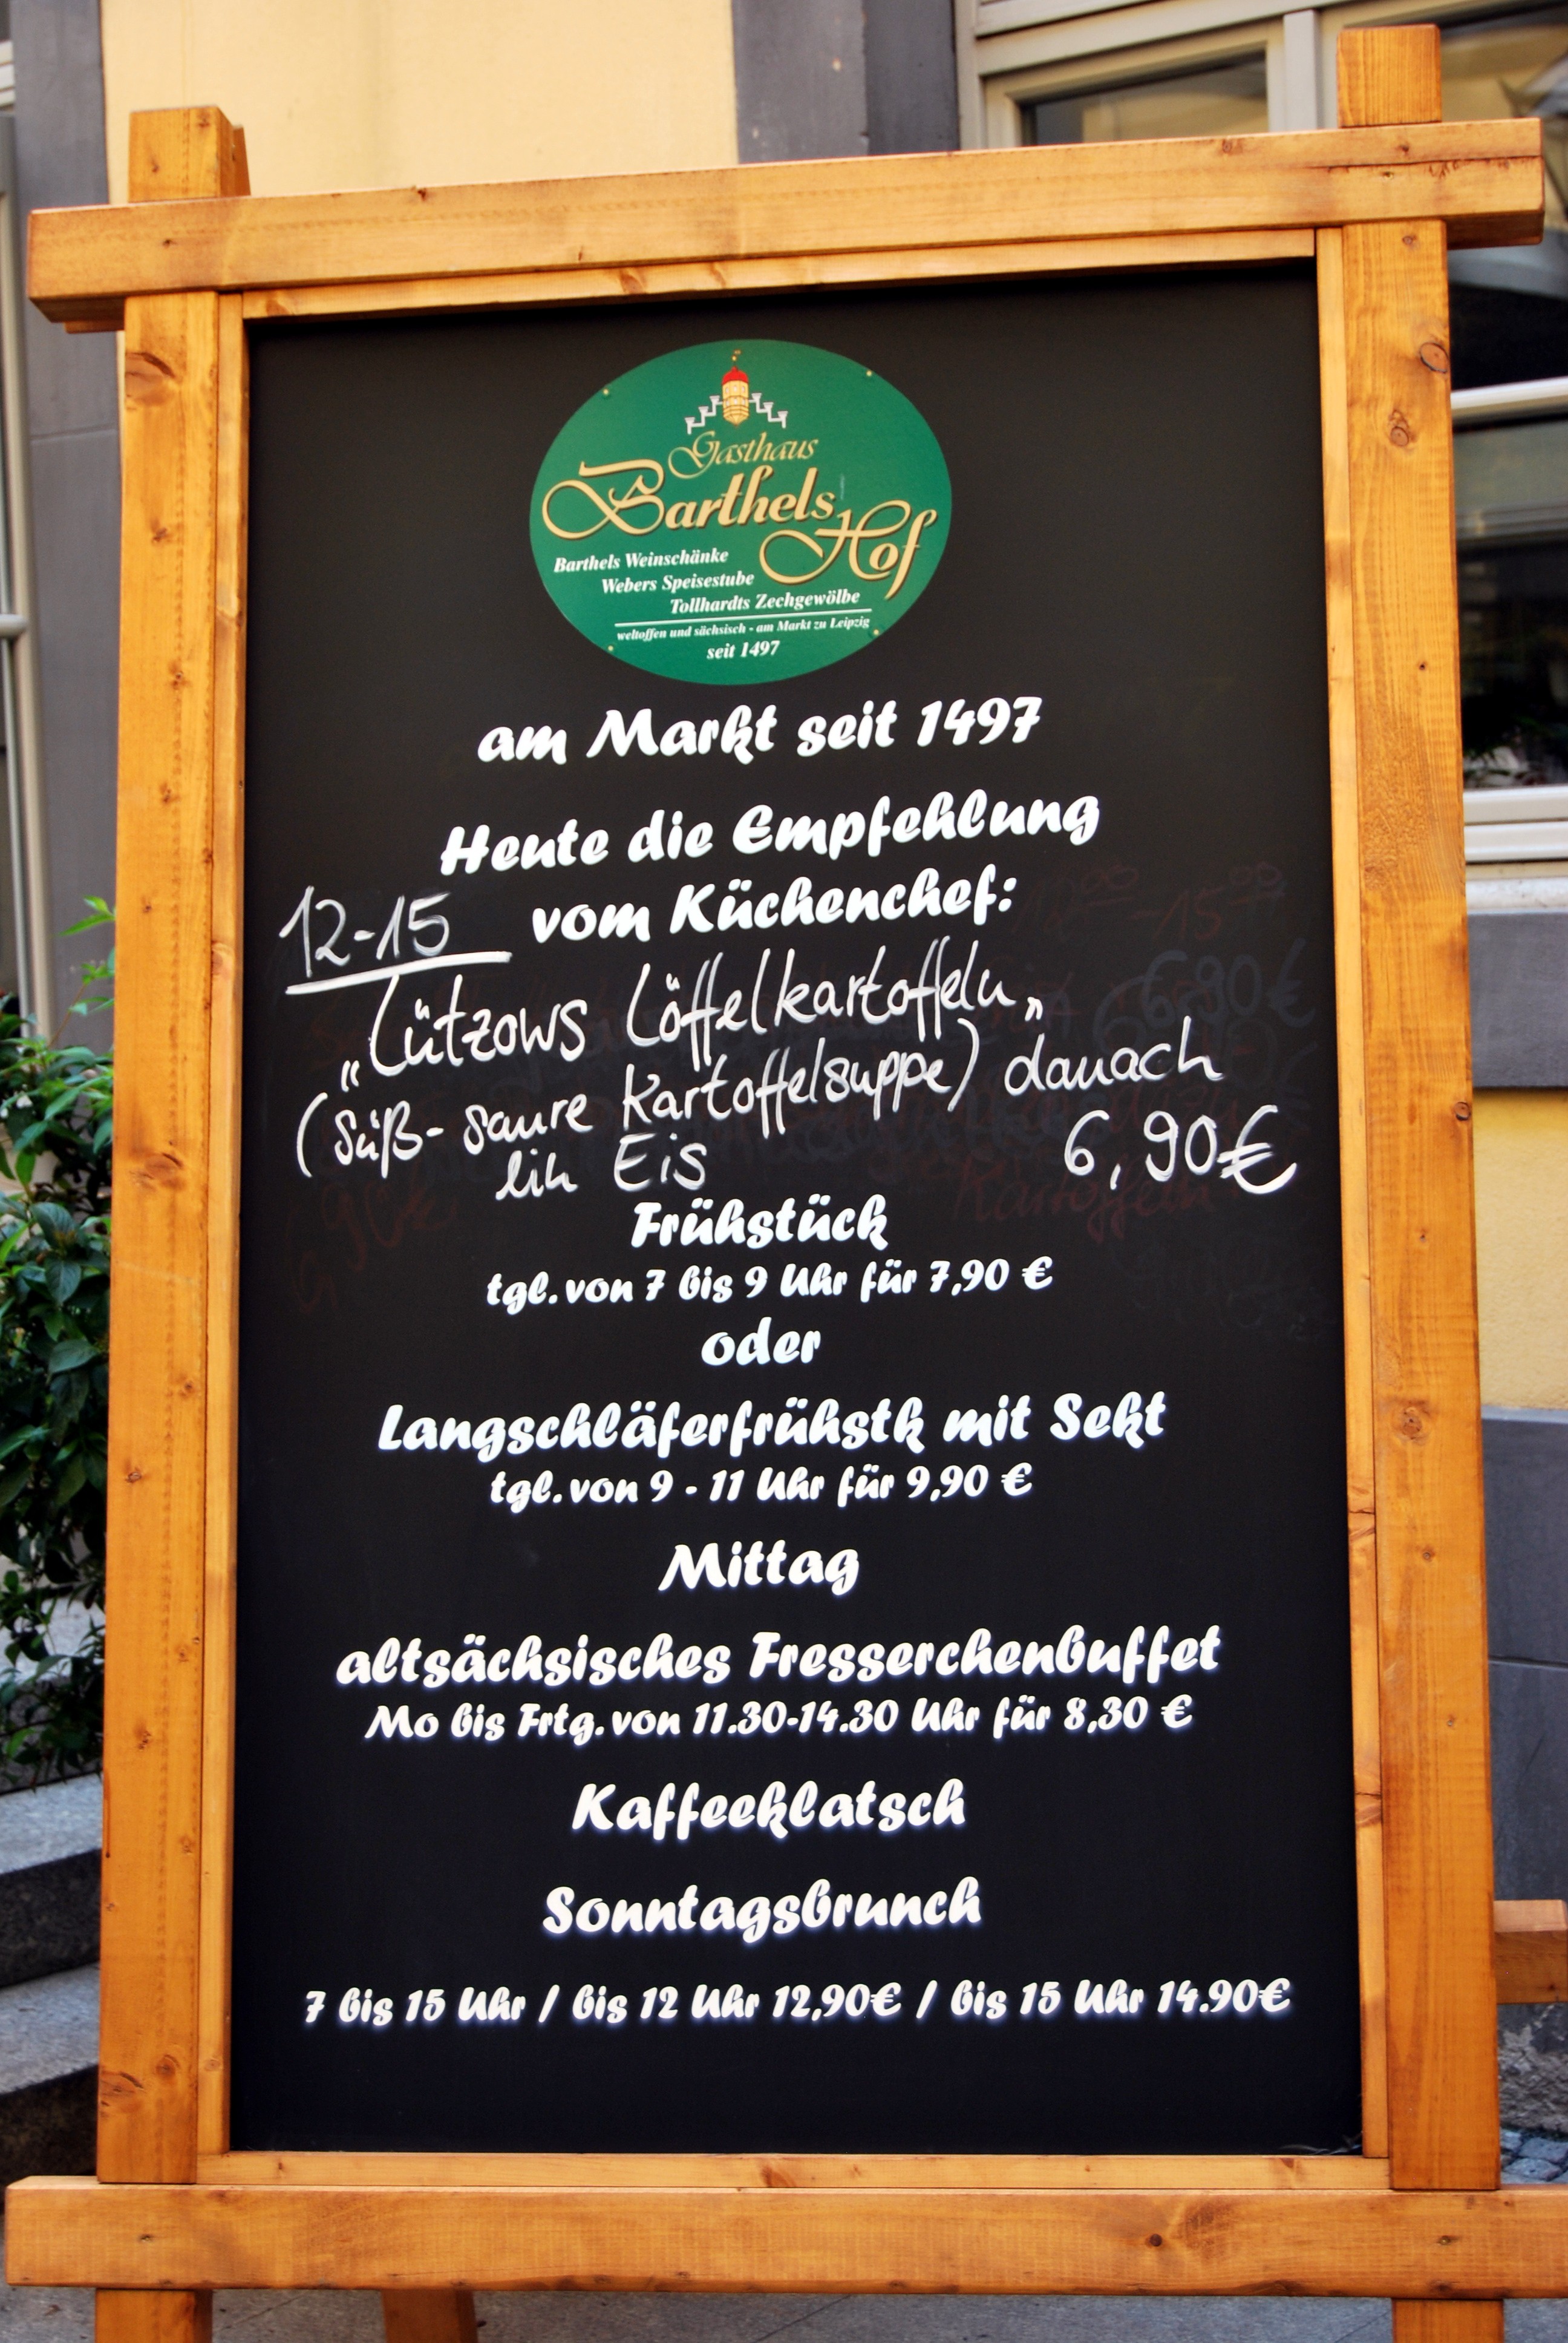 Gasthaus
Barthels
Hof
Barthels Weinschänke
Webers Speisestube
Tollhardts Zechgewölbe
weltoffen und sächsisch - am Markt zu Leipzig
seit 1497
am Markt seit 1497
Heute die Empfehlung
12-15 vom Küchenchef:
„Lützows Löffelkartoffeln„
(süß-saure Kartoffelsuppe) danach
Eis 6,90€
Frühstück
tgl. von 7 bis 9 Uhr für 7,90 €
oder
Langschläferfrühstk mit Sekt
tgl. von 9 - 11 Uhr für 9,90 €
Mittag
altsächsisches Fresserchenbuffet
Mo bis Frtg. von 11.30-14.30 Uhr für 8,30 €
Kaffeeklatsch
Sonntagsbrunch
7 bis 15 Uhr / bis 12 Uhr 12,90€ / bis 15 Uhr 14.90€